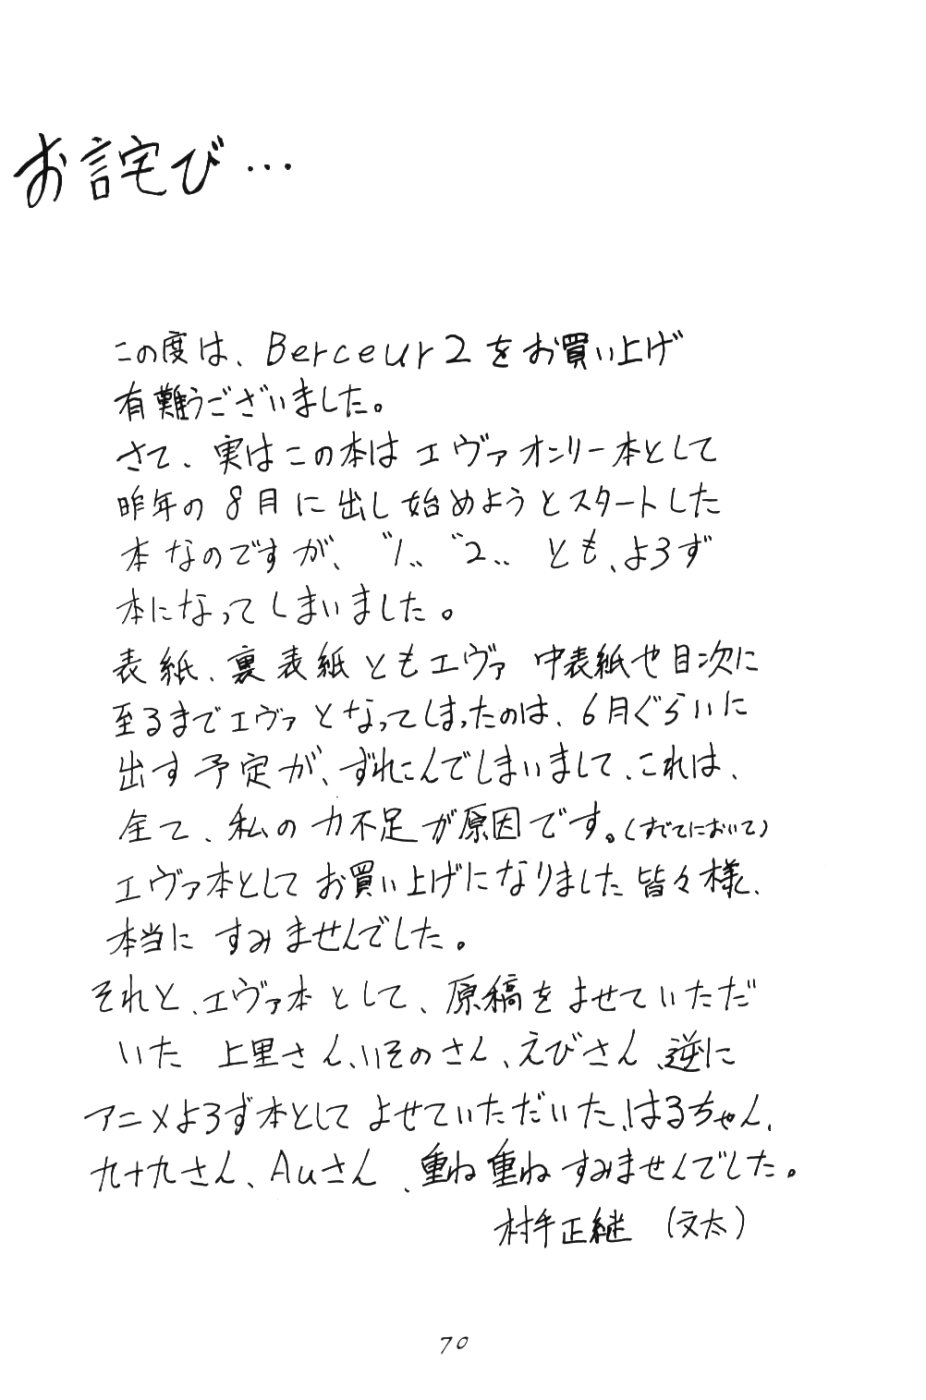 お詫び…
この度は、Berceur2をお買い上げ
有難うございました。
さて、実はこの本はエヴァオンリー本として
昨年の8月に出し始めようとスタートした
本なのですが、〝1〟〝2〟とも、よろず
本になってしまいました。
表紙、裏表紙ともエヴァ 中表紙や目次に
至るまでエヴァとなってしまったのは、6月ぐらいに
出す予定が、ずれこんでしまいまして、これは、
全て、私の力不足が原因です。(すべてにおいて)
エヴァ本としてお買い上げになりました皆々様、
本当にすみませんでした。
それと、エヴァ本として、原稿をよせていただ
いた 上里さん、いそのさん、えびさん、逆に
アニメよろず本としてよせていただいた、はるちゃん、
九十九さん、Auさん、重ね重ねすみませんでした。
村手正継 (文太)
70